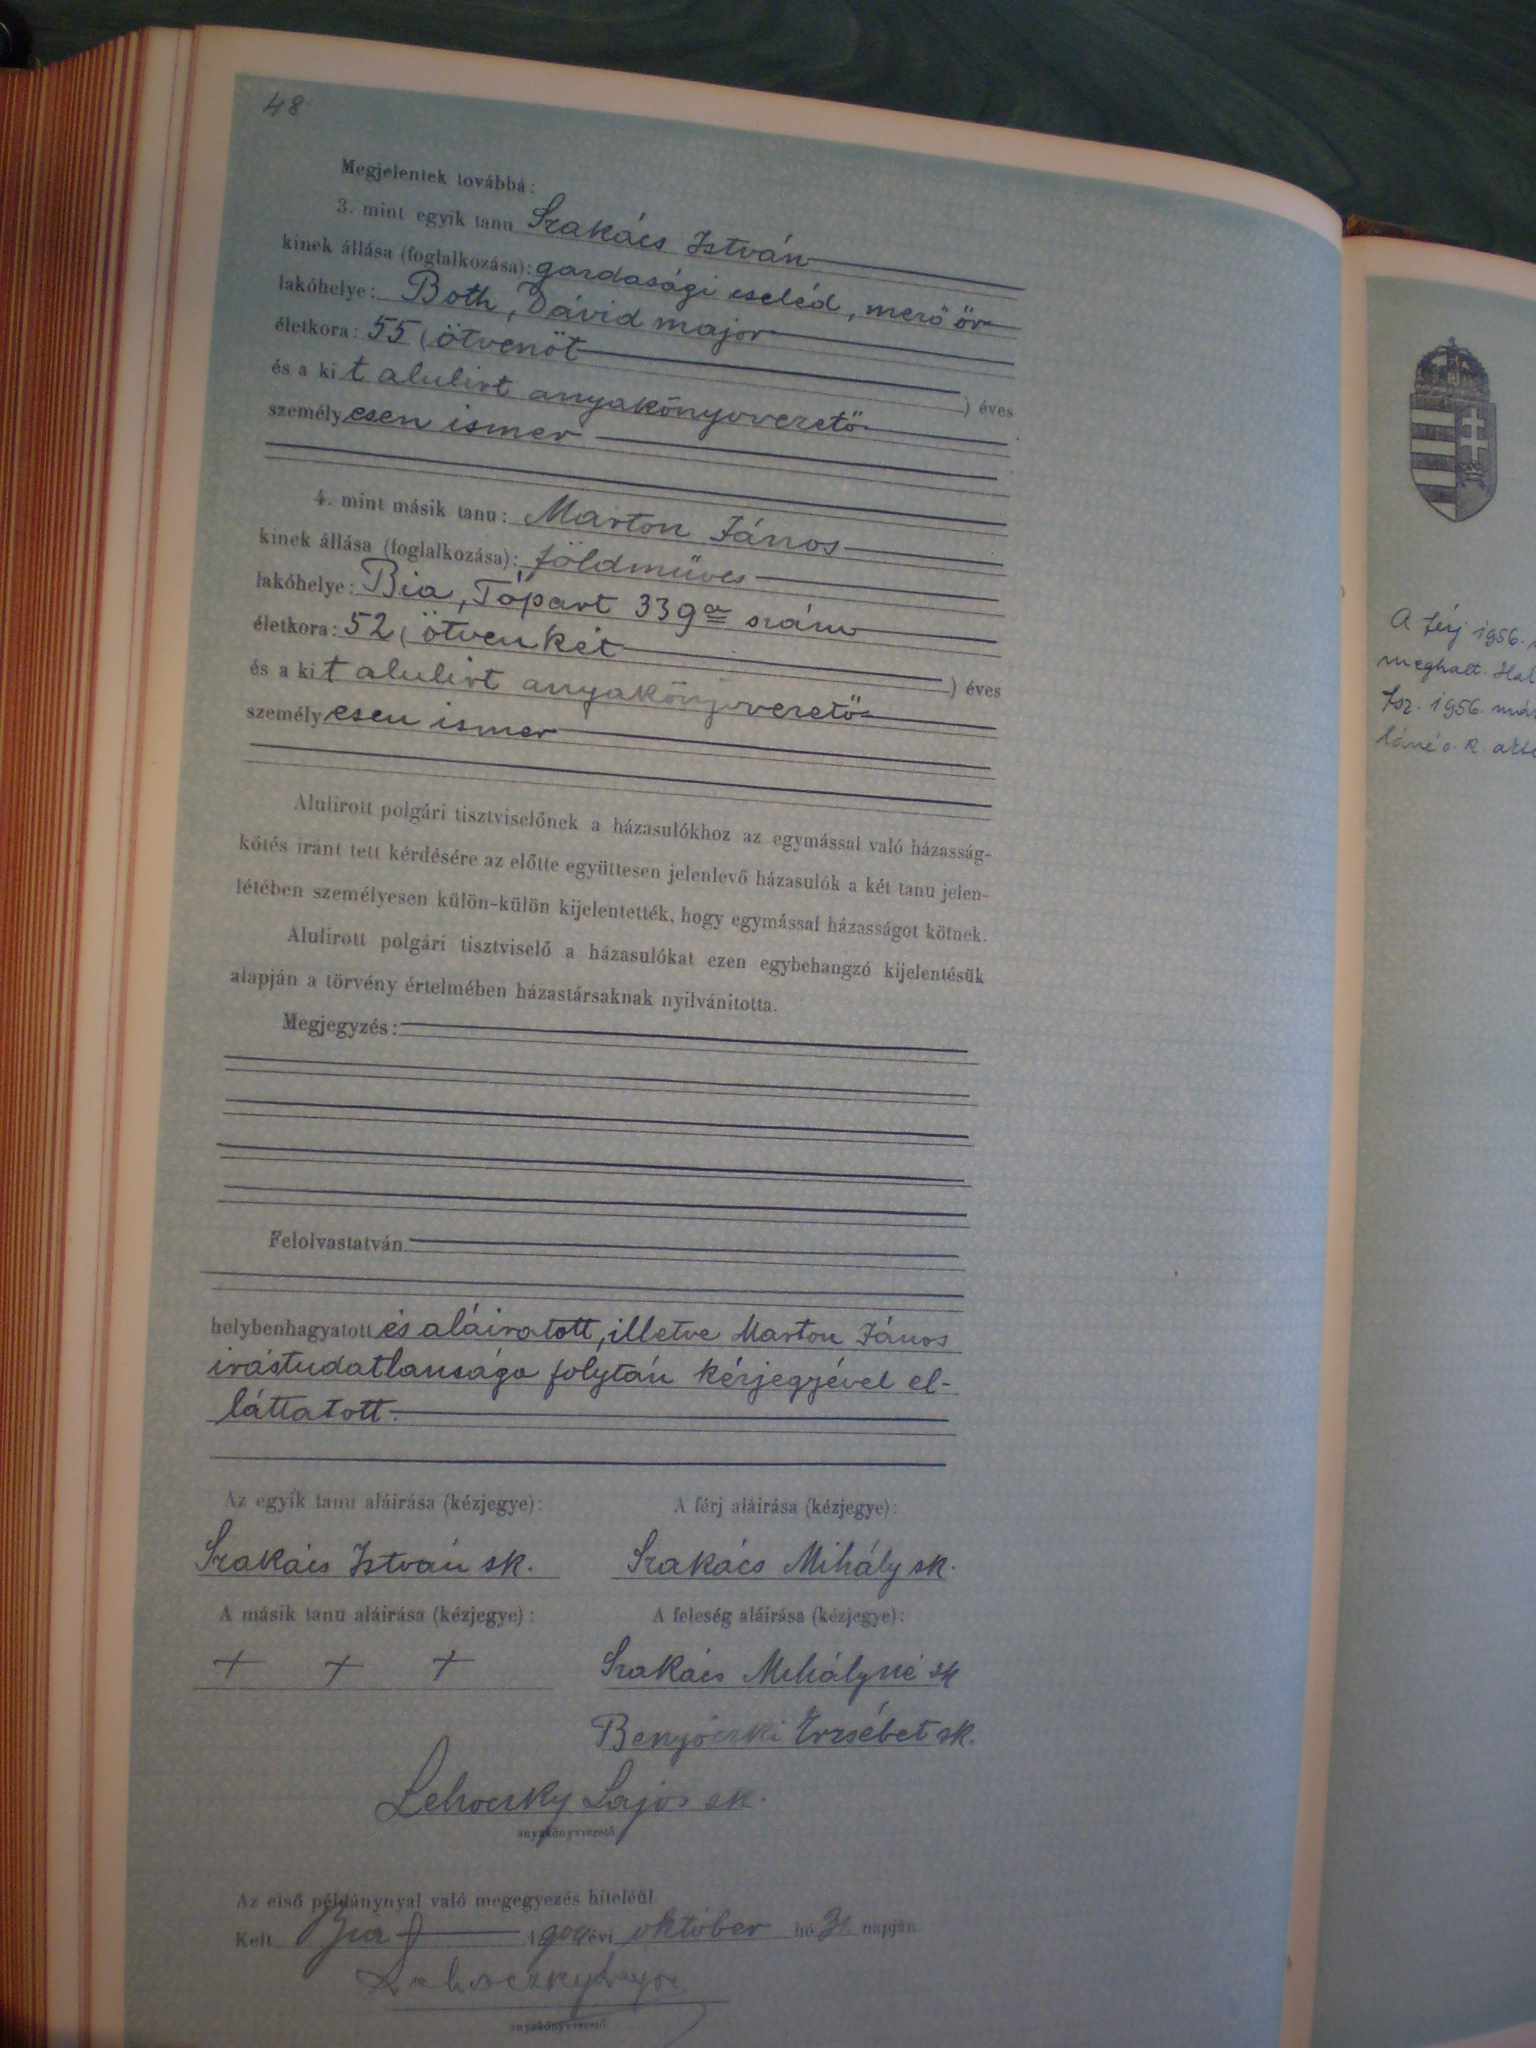 48
Megjelentek továbbá:
3. mint egyik tanu Szakács István
kinek állása (foglalkozása): gazdasági cseléd, mező őr
lakóhelye: Both, Dávid major
életkora: 55 (ötvenöt ) éves
és a kit alulirt anyakönyvvezető
személyesen ismer
4. mint másik tanu: Marton János
kinek állása (foglalkozása): földmüves
lakóhelye: Bia, Tópart 339a szám
életkora: 52 (ötvenkét ) éves
és a kit alulirt anyakönyvvezető
személyesen ismer
Alulirott polgári tisztviselőnek a házasulókhoz az egymással való házasság-
kötés iránt tett kérdésére az előtte együttesen jelenlevő házasulók a két tanu jelen-
létében személyesen külön-külön kijelentették, hogy egymással házasságot kötnek.
Alulirott polgári tisztviselő a házasulókat ezen egybehangzó kijelentésük
alapján a törvény értelmében házastársaknak nyilvánitotta.
Megjegyzés:
Felolvastatván
helybenhagyatott és aláiratott, illetve Marton János
irástudatlansága folytán kézjegyével el-
láttatott.
Az egyik tanu aláirása (kézjegye): A férj aláirása (kézjegye):
Szakács István sk. Szakács Mihály sk.
A másik tanu aláirása (kézjegye): A feleség aláirása (kézjegye):
+ + + Szakács Mihályné sk
Benyóczki Erzsébet sk.
Lehoczky Lajos sk.
anyakönyvvezető
Az első példánynyal való megegyezés hiteléül.
Kelt Bia évi október hó 31 napján
Lehoczky Lajos
anyakönyvvezető
A férj 1956.
meghalt. Hal
fsz. 1956. már